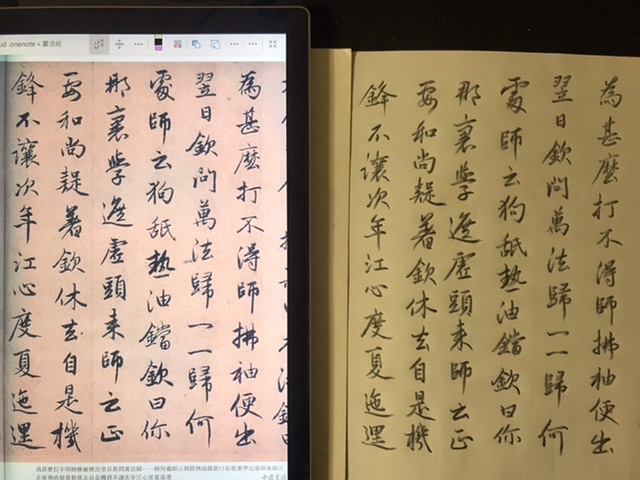 onenote » 書法組
為甚麼打不得師拂袖便出
翌日欽問萬法歸一一歸何
處師云狗舐熱油鐺欽曰你
那裏學這虛頭來師云正
要和尚疑著欽休去自是機
鋒不讓次年江心度夏迤邐
為甚麼打不得師拂袖便出
翌日欽問萬法歸一一歸何
處師云狗舐熱油鐺欽曰你
那裏學這虛頭來師云正
要和尚疑著欽休去自是機
鋒不讓次年江心度夏迤邐